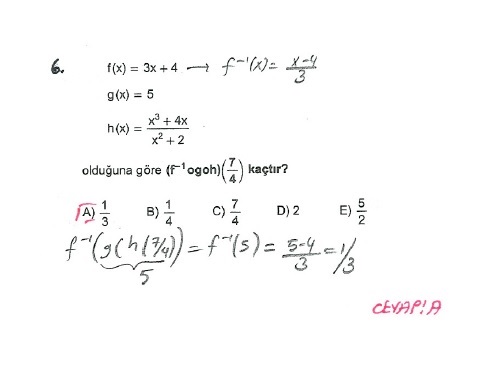 6. f(x) = 3x + 4 → f⁻¹(x) = (x-4)/3
g(x) = 5
h(x) = (x³ + 4x)/(x² + 2)
olduğuna göre (f⁻¹ogoh)(7/4) kaçtır?
A) 1/3 B) 1/4 C) 7/4 D) 2 E) 5/2
f⁻¹(g(h(7/4)) = f⁻¹(5) = (5-4)/3 = 1/3
5
CEVAP: A